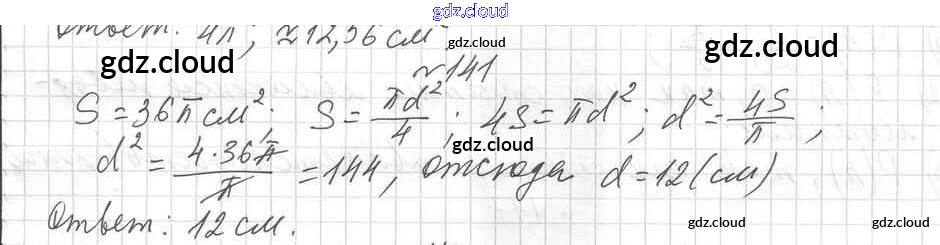 gdz.cloud
Ответ: 4π; ≈12,56 см²
gdz.cloud
gdz.cloud gdz.cloud
№141
S = 36π см²; S = πd²/4; 4S = πd²; d² = 4S/π;
d² = 4·36π/π = 144, отсюда d = 12 (см)
Ответ: 12 см.
gdz.cloud gdz.cloud gdz.cloud